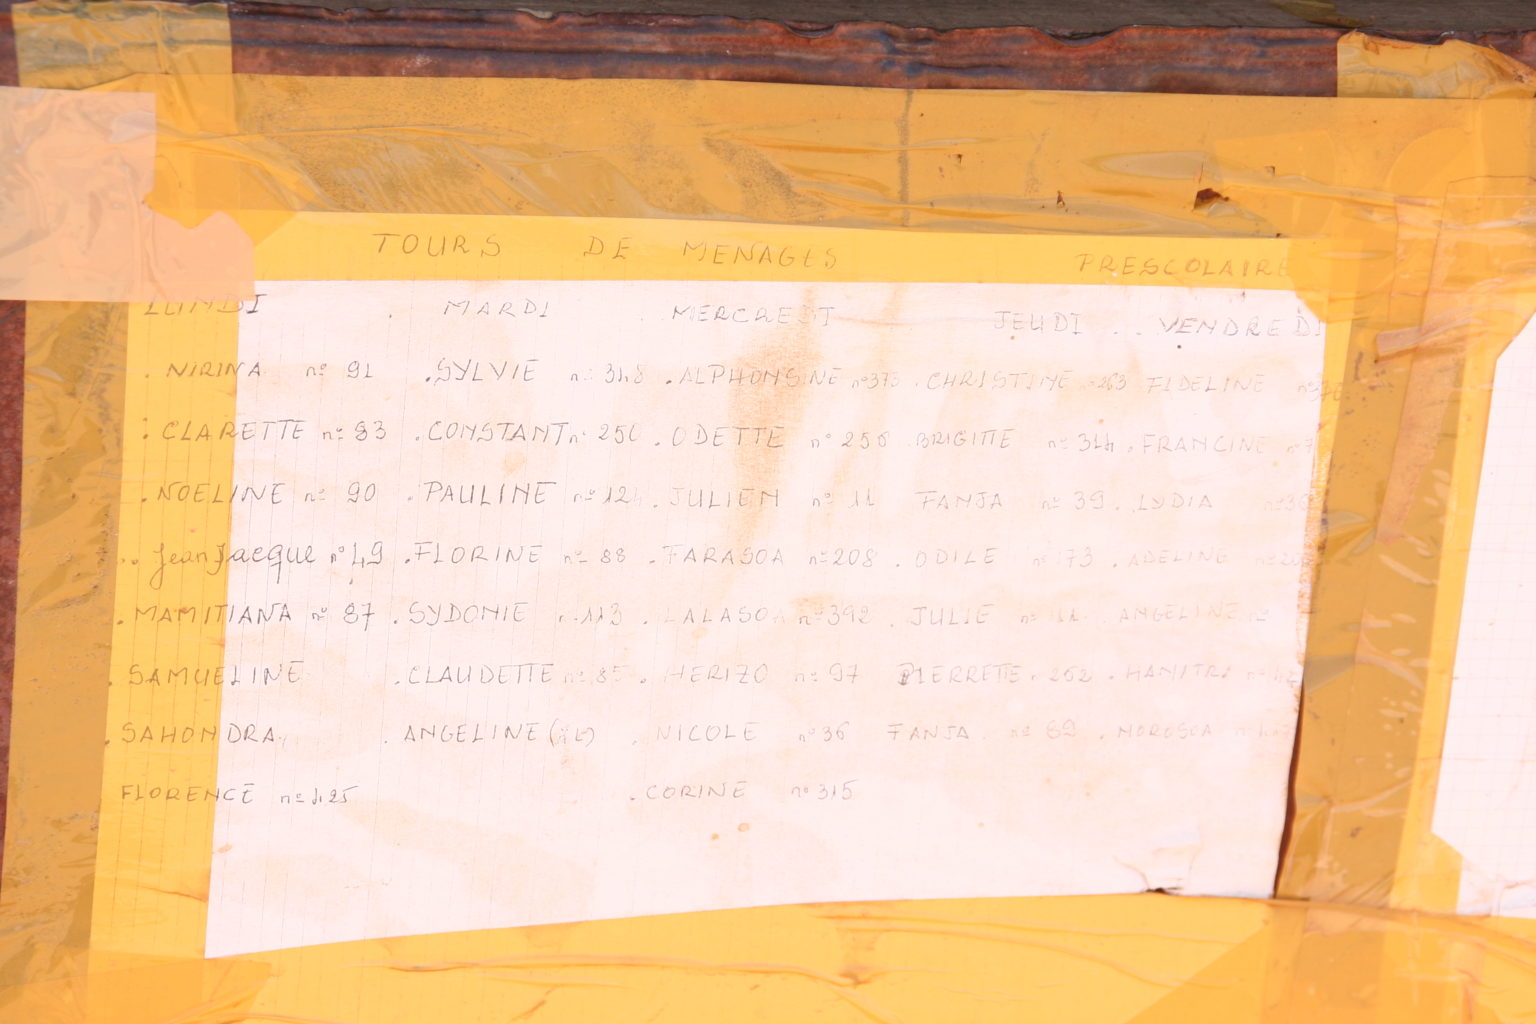 TOURS DE MENAGES PRESCOLAIRE
LUNDI MARDI MERCREDI JEUDI VENDREDI
. NIRINA nº 91 . SYLVIE nº 348 . ALPHONSINE nº 375 . CHRISTINE nº 263 FIDELINE
. CLARETTE nº 83 . CONSTANT nº 250 . ODETTE nº 256 . BRIGITTE nº 314 . FRANCINE
. NOELINE nº 90 . PAULINE . JULIEN nº 11 FANJA nº 39 . LYDIA
. Jean Jacque nº 49 . FLORINE nº 88 . FARASOA nº 208 . ODILE nº 73 . ADELINE
. MAMITIANA nº 87 . SYDONIE nº 113 LALASOA nº 392 . JULIE nº 11 . ANGELINE nº
. SAMUELINE . CLAUDETTE nº 85 . HERIZO nº 97 PIERRETTE nº 262 . HANITRA
. SAHONDRA . ANGELINE . NICOLE nº 36 FANJA nº 89 . NOROSOA
FLORENCE nº 425 . CORINE nº 315